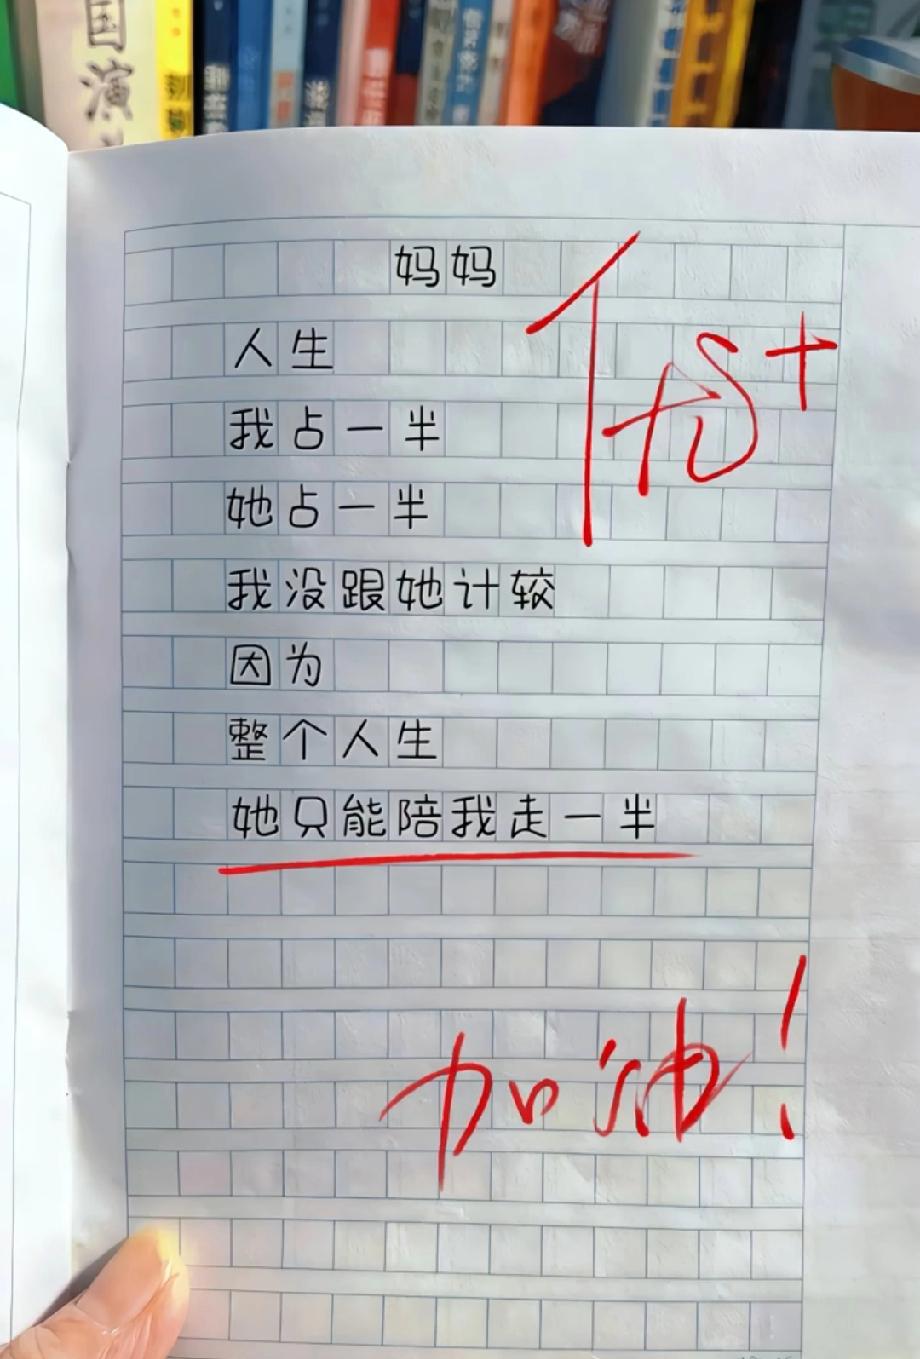 国演
妈妈
优+
人生
我占一半
她占一半
我没跟她计较
因为
整个人生
她只能陪我走一半
加油!